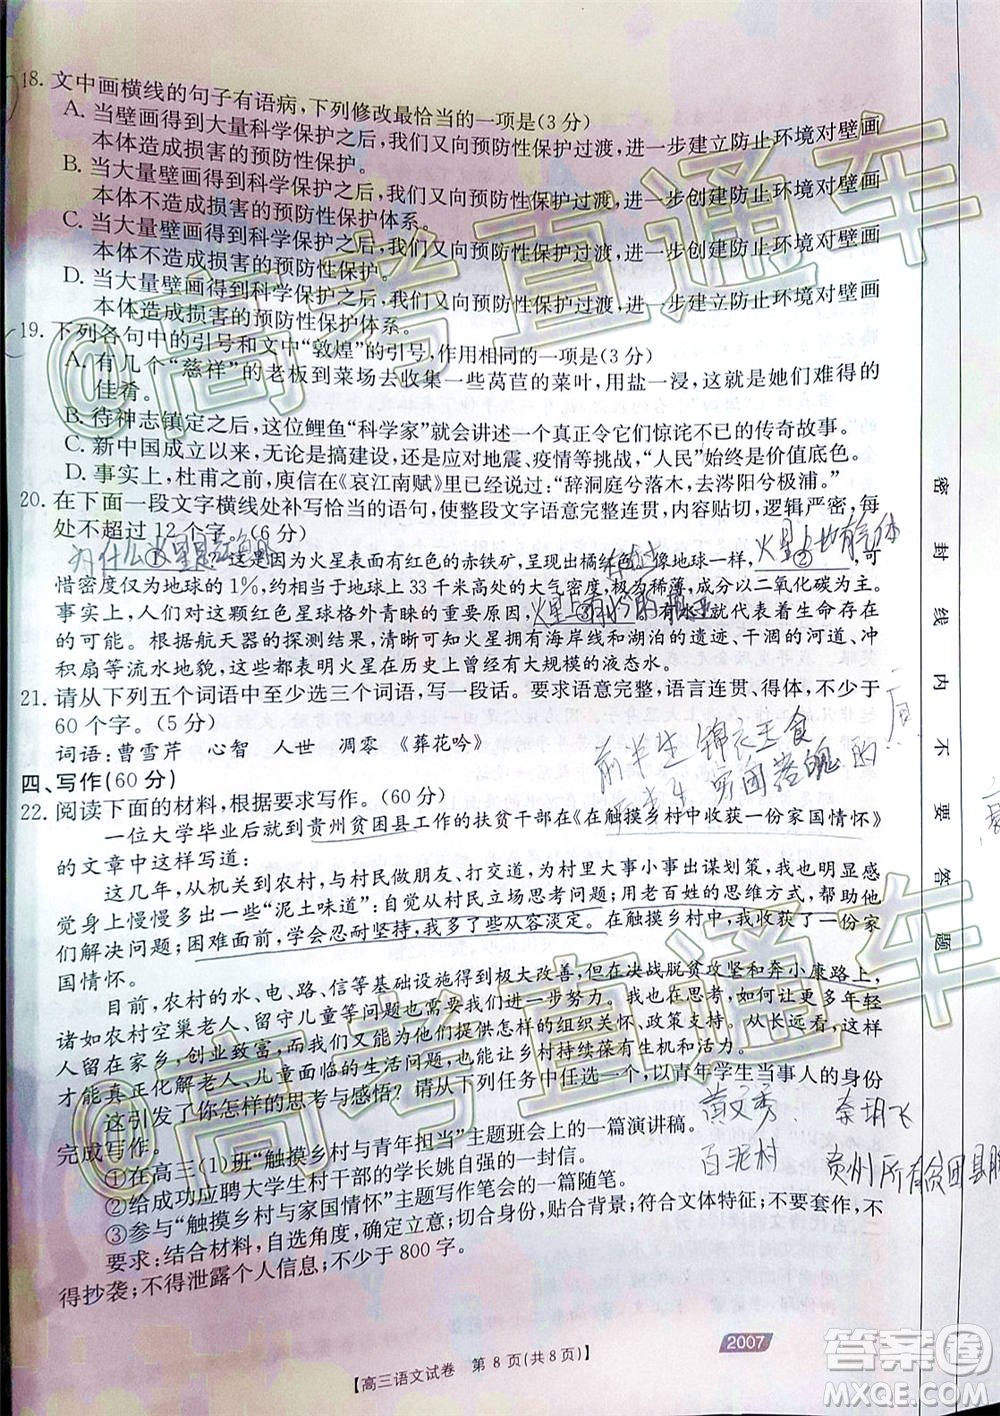 18. 文中画横线的句子有语病,下列修改最恰当的一项是(3分)
A. 当壁画得到大量科学保护之后,我们又向预防性保护过渡,进一步建立防止环境对壁画
本体造成损害的预防性保护。
B. 当大量壁画得到科学保护之后,我们又向预防性保护过渡,进一步创建防止环境对壁画
本体不造成损害的预防性保护体系。
C. 当大量壁画得到科学保护之后,我们又向预防性保护过渡,进一步建立防止环境对壁画
本体不造成损害的预防性保护。
D. 当大量壁画得到科学保护之后,我们又向预防性保护过渡,进一步建立防止环境对壁画
本体造成损害的预防性保护体系。
19. 下列各句中的引号和文中“敦煌”的引号,作用相同的一项是(3分)
A. 有几个“慈祥”的老板到菜场去收集一些莴苣的菜叶,用盐一浸,这就是她们难得的
佳肴。
B. 待神志镇定之后,这位鲤鱼“科学家”就会讲述一个真正令它们惊诧不已的传奇故事。
C. 新中国成立以来,无论是搞建设、应对地震、疫情等挑战,“人民”始终是价值底色。
D. 事实上,杜甫之前,庾信在《哀江南赋》里已经说过:“辞洞庭兮落木,去涔阳兮极浦。”
20. 在下面一段文字横线处补写恰当的语句,使整段文字语意完整连贯,内容贴切,逻辑严密,每
处不超过12个字。(6分)
为什么火星是红色的
①?这是因为火星表面有红色的赤铁矿,呈现出橘红色。像地球一样,②,可
火星上也有气体
惜密度仅为地球的1%,类似于地球上33千米高处的大气密度,极为稀薄,成分以二氧化碳为主。
事实上,人们对这颗红色星球格外青睐的重要原因,③。有水就代表着生命存在
的可能。根据航天器的探测结果,清晰可见火星拥有海岸线和湖泊的遗迹、干涸的河道、冲
积扇等流水地貌,这些都表明火星在历史上曾有大规模的液态水。
21. 请从下列五个词语中至少选三个词语,写一段话。要求语意完整,语言连贯、得体,不少于
60个字。(5分)
词语:曹雪芹 心智 人世 凋零 《葬花吟》
前半生锦衣玉食
后半生穷困落魄的
四、写作(60分)
22. 阅读下面的材料,根据要求写作。(60分)
一位大学毕业后就到贵州贫困县工作的扶贫干部在《在触摸乡村中收获一份家国情怀》
的文章中这样写道:
这几年,从机关到农村,与村民做朋友、打交道,为村里大事小事出谋划策,我渐渐感
觉身上慢慢多了些“泥土味道”:自觉从村民立场思考问题;用老百姓的思维方式,帮助他
们解决问题;困难面前,学会忍耐坚持,我多了些从容淡定。在触摸乡村中,我收获了一份家
国情怀。
目前,农村的水、电、路、信等基础设施得到极大改善,但在决战脱贫攻坚和奔小康路上,
诸如农村空巢老人、留守儿童等问题依然没有根本解决。我也在思考,如何让更多年轻
人留在家乡,创业致富,并能为他们提供怎样的组织关怀、政策支持。长远看,如何做
才能真正化解老人、儿童的生活问题,也能让乡村持续葆有生机和活力。
这引发了你怎样的思考与感悟?请从下列任务中任选一个,以青年学生当事人的身份
完成写作。
①在高三(1)班“触摸乡村与青年担当”主题班会上的一篇演讲稿。
②给成功应聘大学生村干部的学长姚自强的一封信。
③参与“触摸乡村与家国情怀”主题写作笔会的一篇随笔。
黄文秀
百泥村
要求:结合材料,自选角度,确定立意;切合身份,贴合背景;符合文体特征;不要套作,不
得抄袭;不得泄露个人信息;不少于800字。
【高三语文试卷 第8页(共8页)】
2007
密封线内不要答题
@高考直通车
@高考直通车
答案圈
MXQE.COM